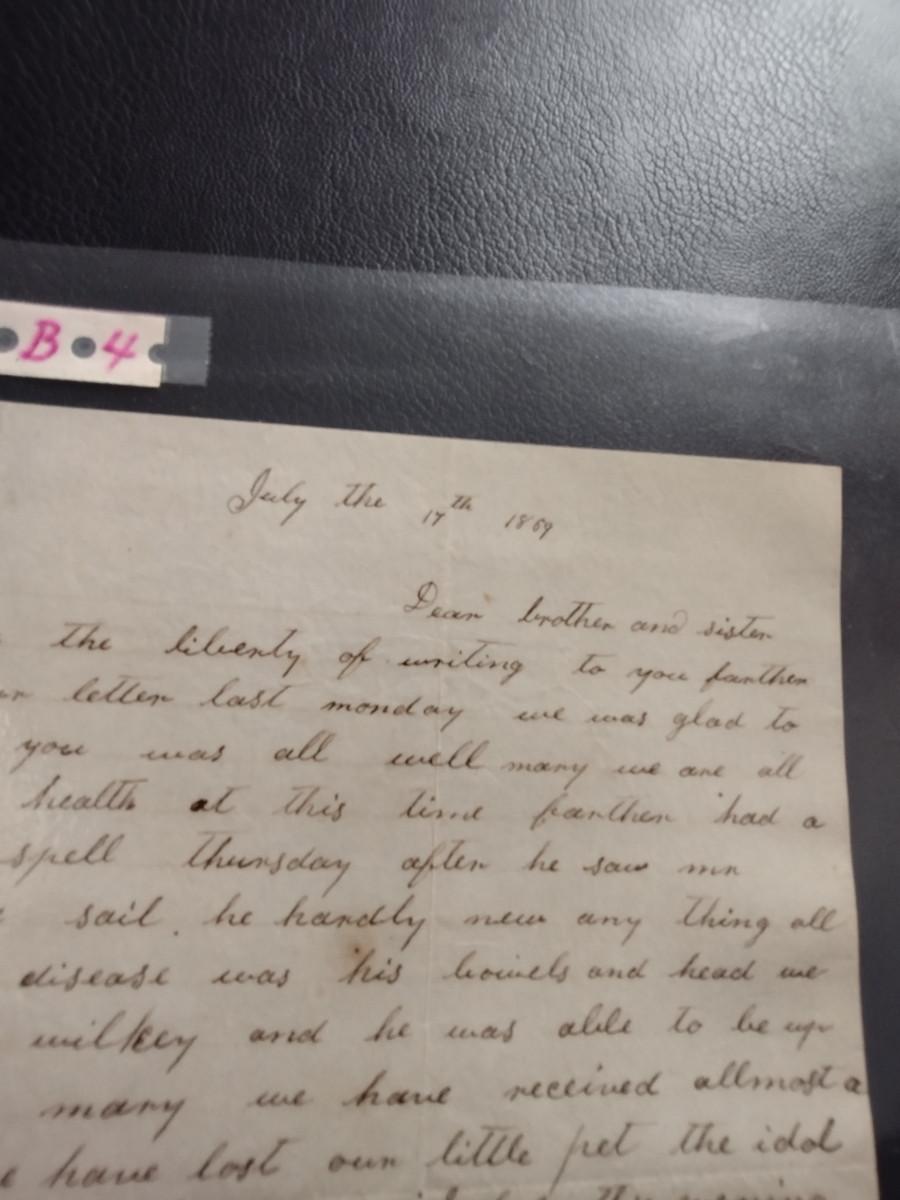 B 4
July the 17th 1869
Dear brother and sister
the liberty of writing to you farther
letter last monday we was glad to
you was all well mary we are all
health at this time farther had a
spell thursday after he saw mr
sail. he hardly new any thing all
disease was his bowels and head we
wilkey and he was able to be up
mary we have received allmost a
have lost our little pet the idol